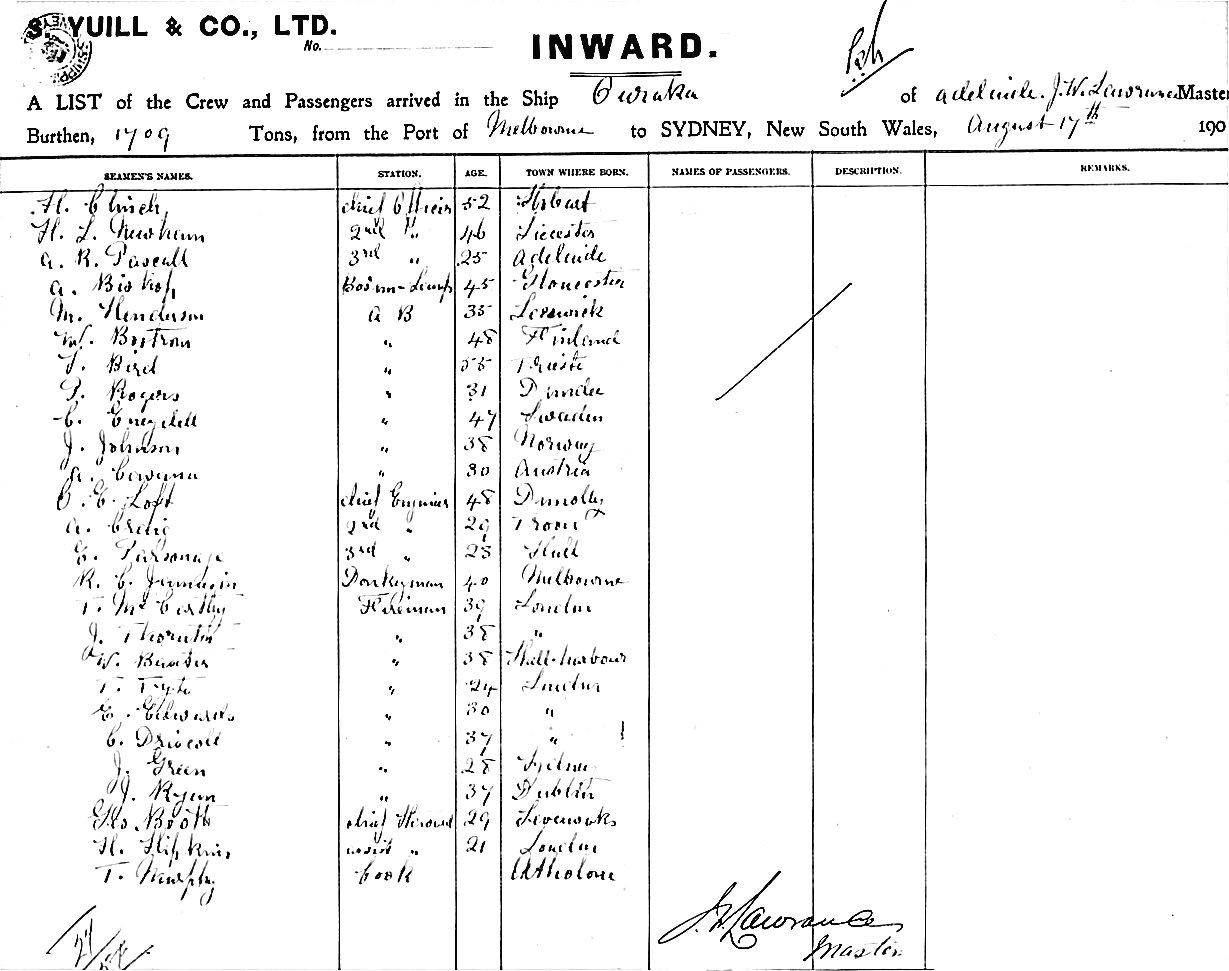 YUILL & CO., LTD.
No.
INWARD.
A LIST of the Crew and Passengers arrived in the Ship Ouraka of Adelaide. J. W. Lawrance Master
Burthen, 1709 Tons, from the Port of Melbourne to SYDNEY, New South Wales, August 17th 190
SEAMEN'S NAMES. STATION. AGE. TOWN WHERE BORN. NAMES OF PASSENGERS. DESCRIPTION. REMARKS.
H. Clinch Chief Officer 52 Hobart
H. L. Newham 2nd " 46 Leicester
A. R. Pascall 3rd " 25 Adelaide
A. Bishop Bosun-Lamps 45 Gloucester
M. Henderson A B 35 Lerwick
W. Bostrom " 48 Finland
T. Bird " 55 Trieste
P. Rogers " 31 Dundee
C. " 47 Sweden
J. Johnson " 38 Norway
" 30 Austria
C. E. Loft Chief Engineer 48 Dunolly
A. Craig 2nd " 29 Troon
E. Parsonage 3rd " 28 Hull
R. C. Jamieson Donkeyman 40 Melbourne
T. McCarthy Fireman 39 London
J. Thornton " 38 "
W. " 38 Hall-harbour
T. Fyfe " 24 London
E. Edwards " 30 "
C. Driscoll " 37 "
J. Green " 28 Sydney
J. Ryan " 37 Dublin
Geo Booth Chief Steward 29 Sevenoaks
H. Hipkins assist " 21 London
T. Murphy Cook Athlone
J. W. Lawrance
Master